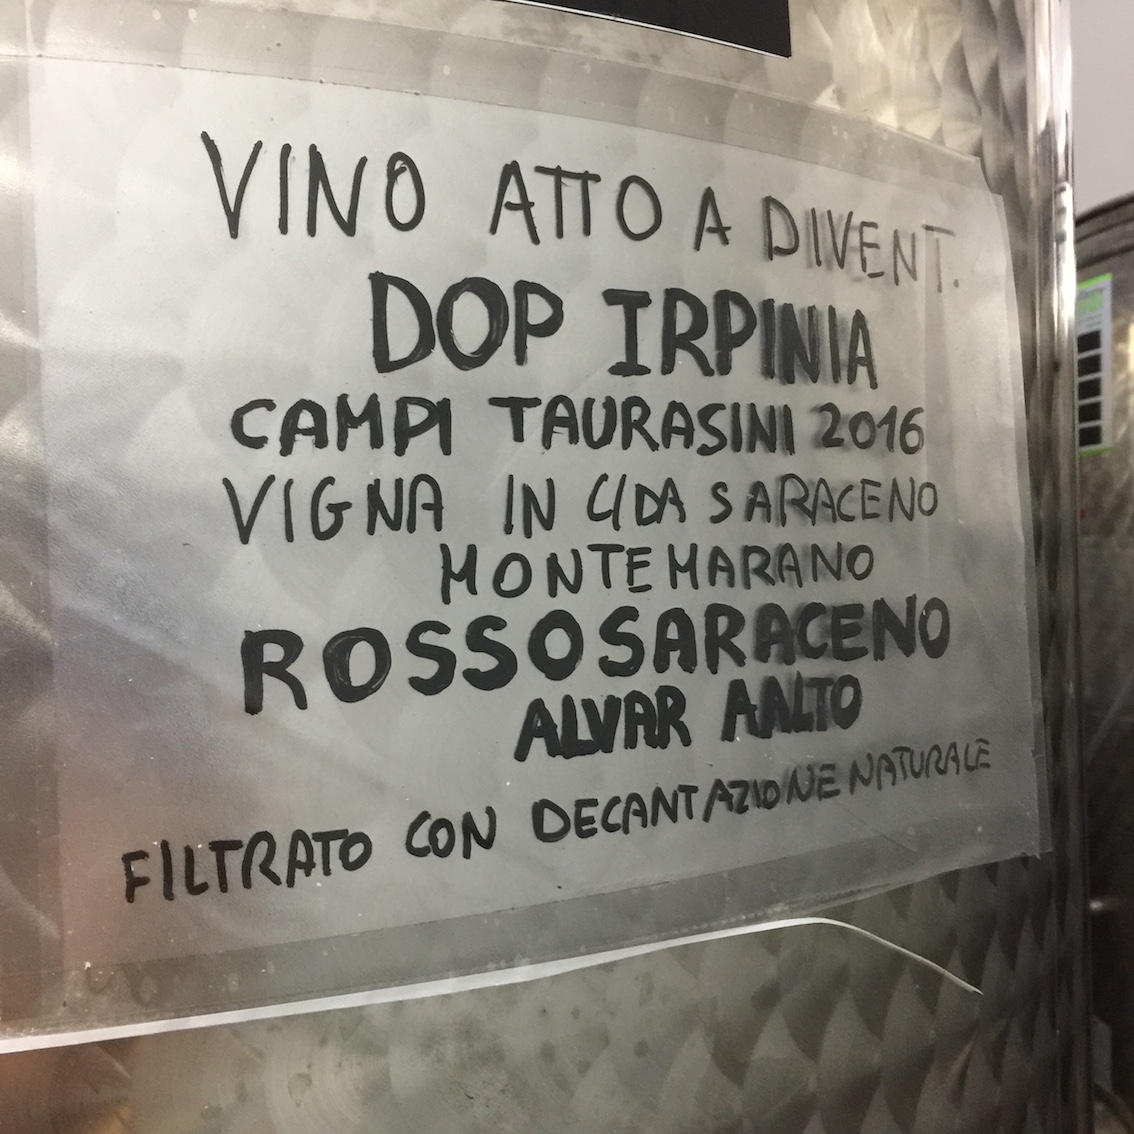 VINO ATTO A DIVENT.
DOP IRPINIA
CAMPI TAURASINI 2016
VIGNA IN C/DA SARACENO
MONTEMARANO
ROSSOSARACENO
ALVAR AALTO
FILTRATO CON DECANTAZIONE NATURALE